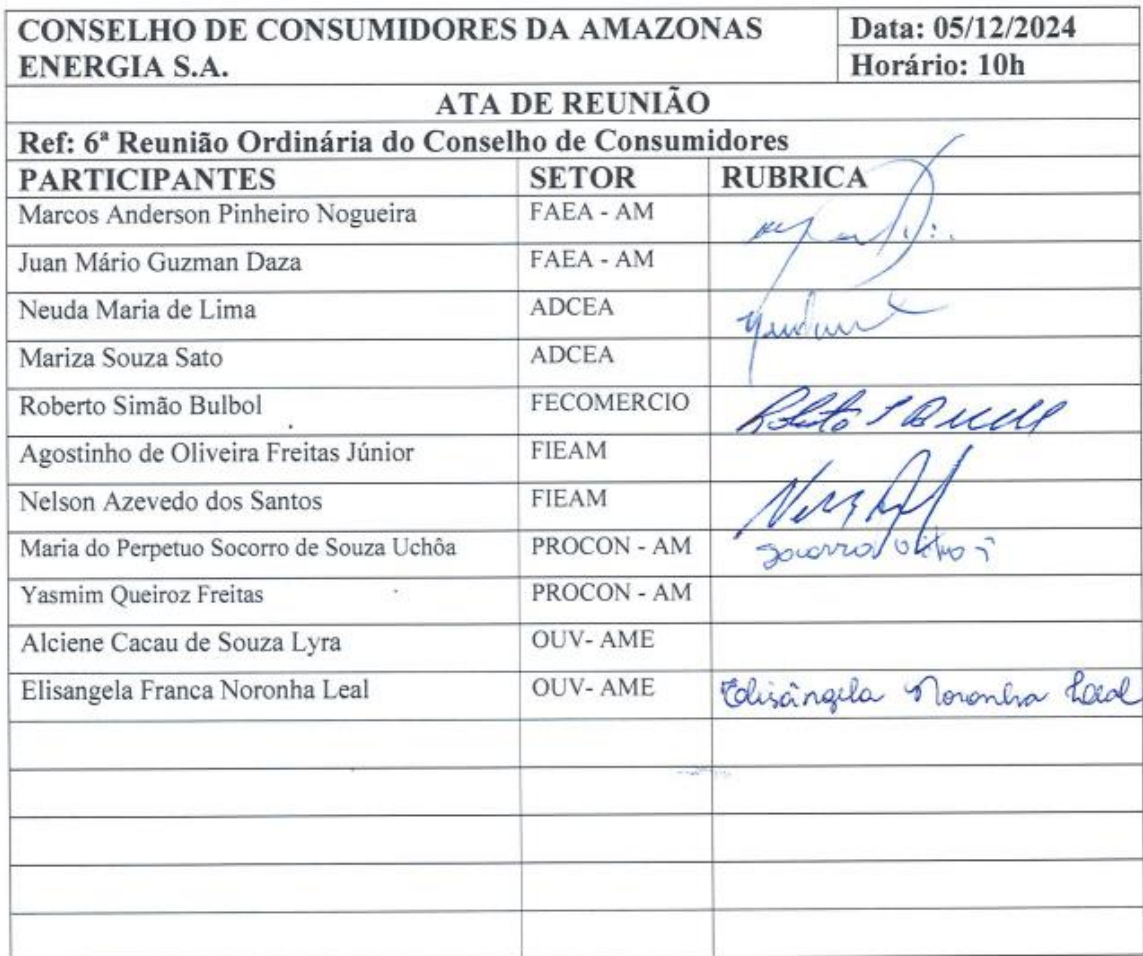 CONSELHO DE CONSUMIDORES DA AMAZONAS
ENERGIA S.A.
Data: 05/12/2024
Horário: 10h
ATA DE REUNIÃO
Ref: 6ª Reunião Ordinária do Conselho de Consumidores
PARTICIPANTES SETOR RUBRICA
Marcos Anderson Pinheiro Nogueira FAEA - AM
Juan Mário Guzman Daza FAEA - AM
Neuda Maria de Lima ADCEA
Mariza Souza Sato ADCEA
Roberto Simão Bulbol FECOMERCIO
Agostinho de Oliveira Freitas Júnior FIEAM
Nelson Azevedo dos Santos FIEAM
Maria do Perpetuo Socorro de Souza Uchôa PROCON - AM Socorro Uchoa
Yasmim Queiroz Freitas PROCON - AM
Alciene Cacau de Souza Lyra OUV- AME
Elisangela Franca Noronha Leal OUV- AME Elisângela Noronha Leal